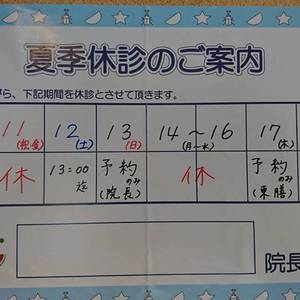 夏季休診のご案内
がら、下記期間を休診とさせて頂きます。
11 12 13 14〜16 17
(祝金) (土) (日) (月〜水) (木)
休 13:00迄 予約のみ(院長) 休 予約のみ(東膳)
院長